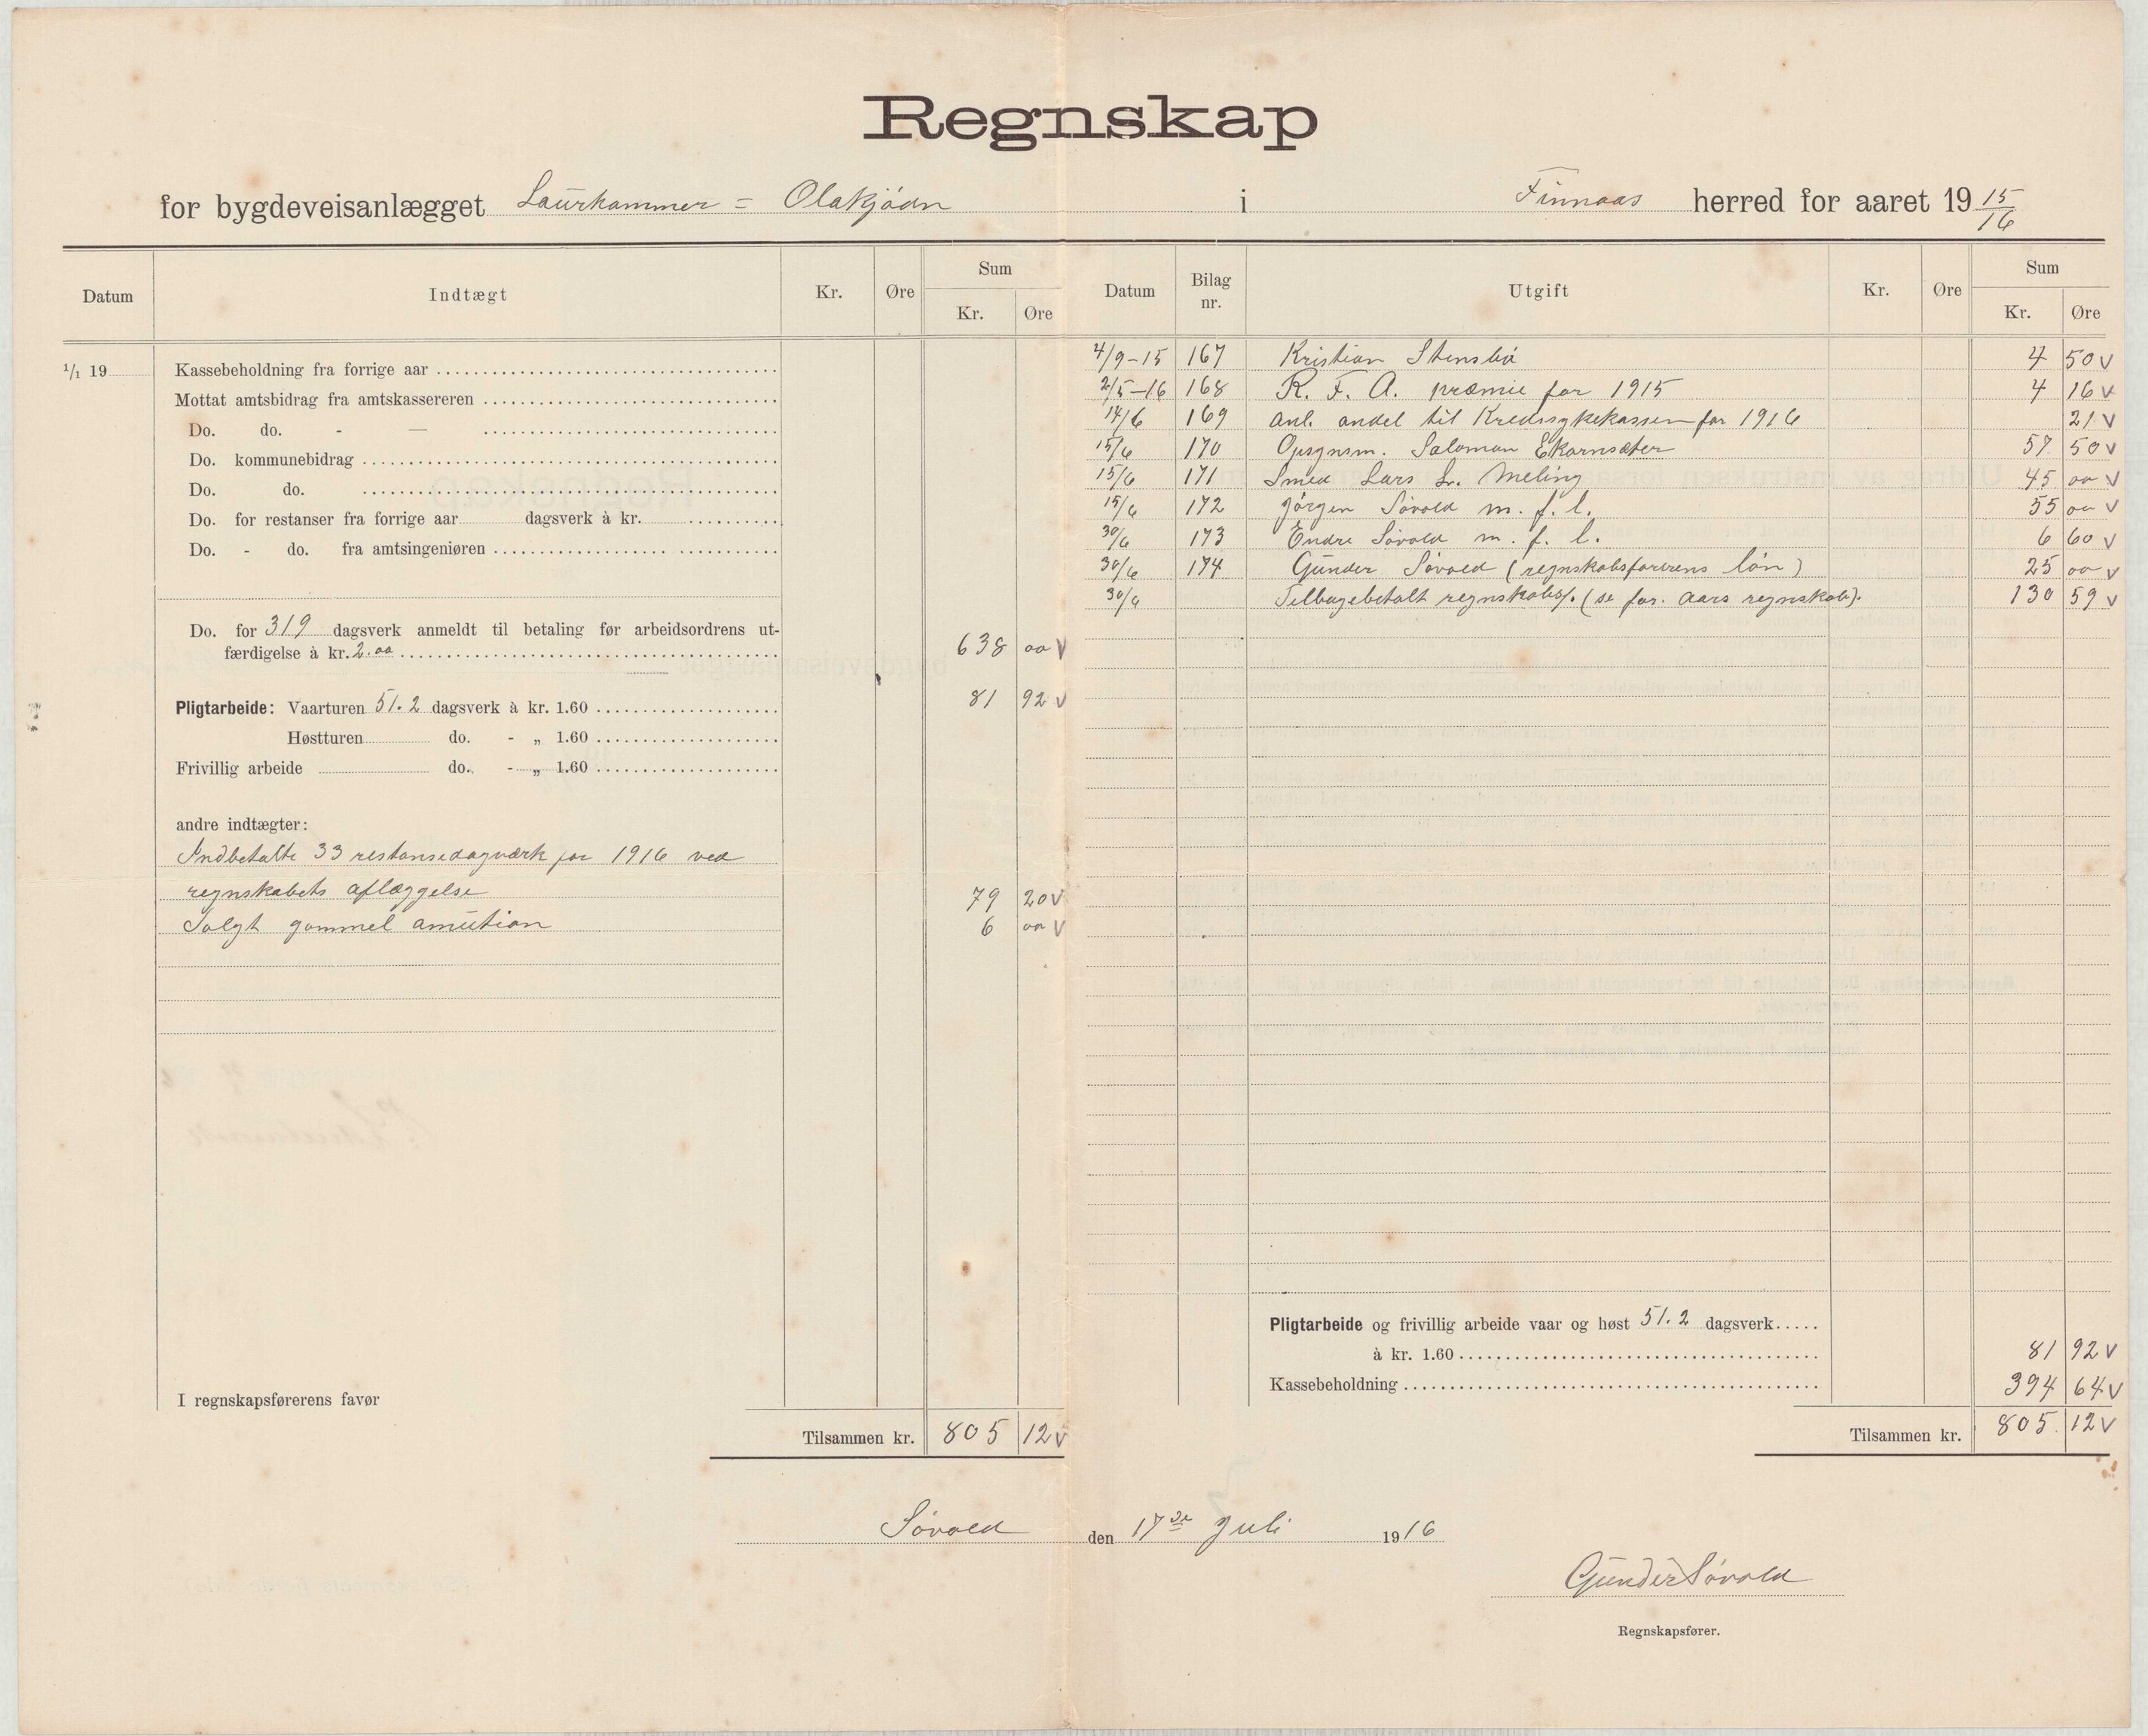 Regnskap
for bygdeveisanlægget Laurhammer = Olakjødn i Finnaas herred for aaret 19 15/16
Datum Indtægt Kr. Øre Sum Kr. Øre
1/1 19 Kassebeholdning fra forrige aar
Mottat amtsbidrag fra amtskassereren
Do. do. - —
Do. kommunebidrag
Do. do.
Do. for restanser fra forrige aar dagsverk à kr.
Do. - do. fra amtsingeniøren
Do. for 319 dagsverk anmeldt til betaling før arbeidsordrens ut-
færdigelse à kr. 2.00 638 00 V
Pligtarbeide: Vaarturen 51.2 dagsverk à kr. 1.60 81 92 V
Høstturen do. - „ 1.60
Frivillig arbeide do. - „ 1.60
andre indtægter:
Indbetalte 33 restansedagværk for 1916 ved
regnskabets aflæggelse 79 20 V
Solgt gammel amution 6 00 V
I regnskapsførerens favør
Tilsammen kr. 805 12 V
Datum Bilag nr. Utgift Kr. Øre Sum Kr. Øre
4/9-15 167 Kristian Stensbø 4 50 V
2/5-16 168 R. F. A. præmie for 1915 4 16 V
14/6 169 Anl. andel til Kredssykekassen for 1916 21 V
15/6 170 Opsynsm. Salomon Ekornsæter 57 50 V
15/6 171 Smed Lars L. Meling 45 00 V
15/6 172 Jørgen Søvold m. f. l. 55 00 V
30/6 173 Endre Søvold m. f. l. 6 60 V
30/6 174 Gunder Søvold (regnskabsførerens løn) 25 00 V
30/6 Tilbagebetalt regnskabsf. (se for. aars regnskab). 130 59 V
Pligtarbeide og frivillig arbeide vaar og høst 51.2 dagsverk
à kr. 1.60 81 92 V
Kassebeholdning 394 64 V
Tilsammen kr. 805 12 V
Søvold den 17de Juli 1916
Gunder Søvold
Regnskapsfører.